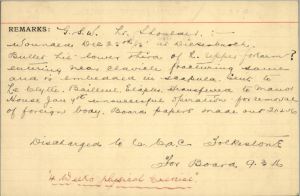 REMARKS: G.S.W. L. Shoulder :
Wounded Dec 25th/15 at Dickebusch.
Bullet hit lower third of L. upper forearm?
entering near clavicle fracturing same
and is embedded in scapula. Sent to
La Clytte. Bailleul, Etaples, transferred to Maud
House Jan 9th unsuccessful operation for removal
of foreign body. Board papers made out
Discharged to C.C.A.C. Folkestone
For Board 9.3.16
"4 Weeks physical exercise"